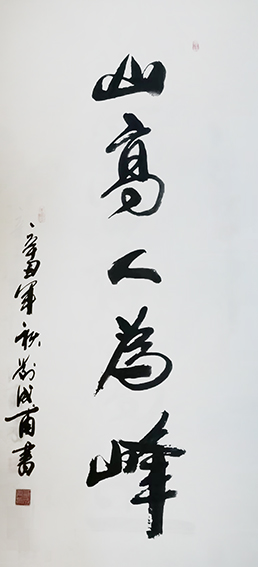 山高人為峰
辛丑年秋 書